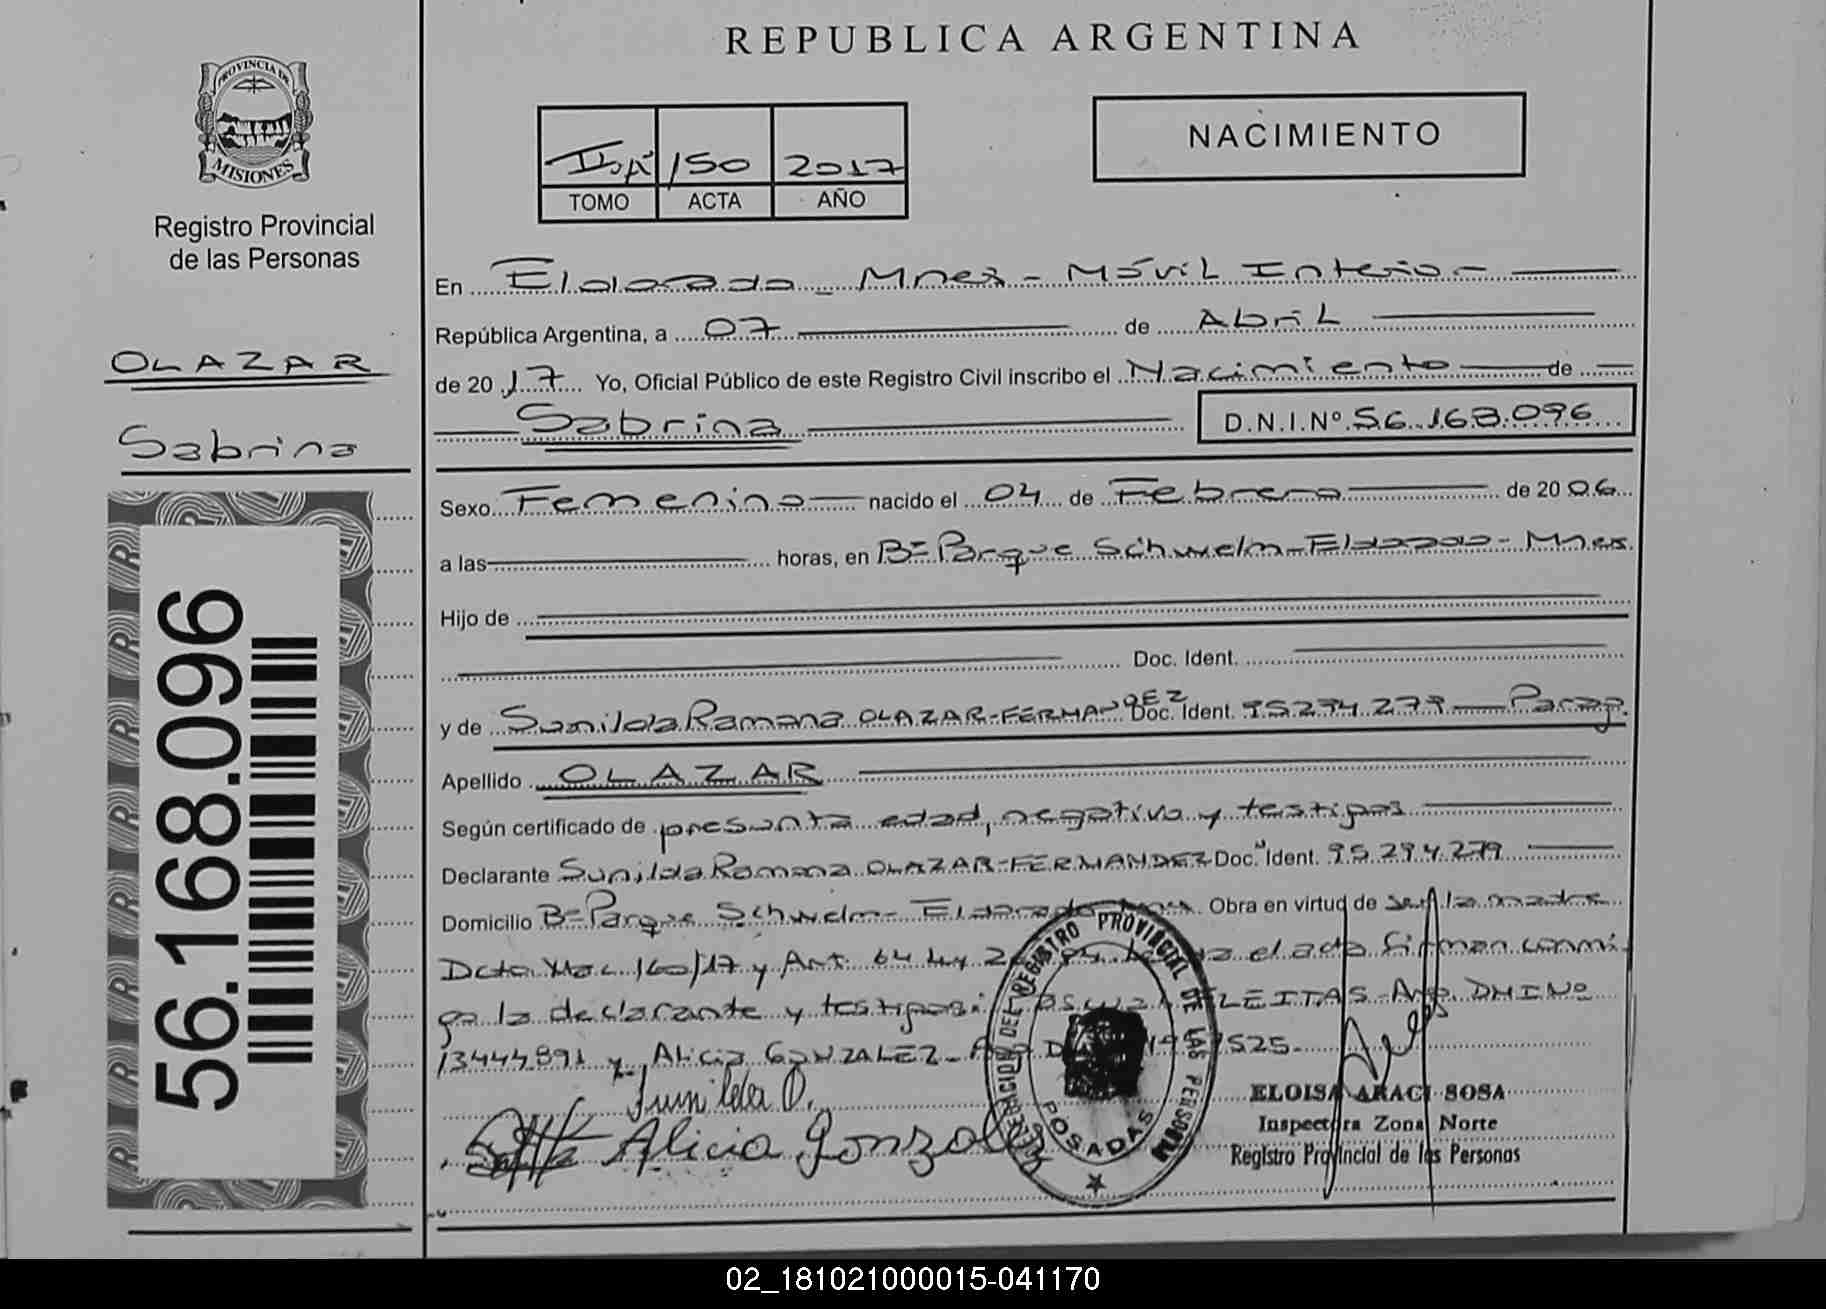 REPUBLICA ARGENTINA
PROVINCIA DE
MISIONES
Registro Provincial
de las Personas
150 2017
TOMO ACTA AÑO
NACIMIENTO
OLAZAR
Sabrina
56.168.096
En Eldorado - Mnes - Móvil Interior -
República Argentina, a 07 de Abril
de 2017 Yo, Oficial Público de este Registro Civil inscribo el Nacimiento de
Sabrina D.N.I.Nº 56.168.096
Sexo Femenino nacido el 04 de Febrero de 2006
a las horas, en Bº Parque Schwelm - Eldorado - Mnes
Hijo de
Doc. Ident.
y de Sunilda Ramona OLAZAR-FERNANDEZ Doc. Ident. 95.294.279 Parag.
Apellido OLAZAR
Según certificado de presunta edad, negativo y testigos
Declarante Sunilda Ramona OLAZAR-FERNANDEZ Doc. Ident. 95.294.279
Domicilio Bº Parque Schwelm - Eldorado Obra en virtud de ser la madre
Dcto. Nac. 160/17 y Art. 64 Ley el acta firman conmi-
go la declarante y testigos: LEITAS - Arg. DNI Nº
13444891 y Alicia GONZALEZ -
Sunilda O.
Alicia Gonzalez
REGISTRO PROVINCIAL DE LAS PERSONAS
POSADAS
ELOISA ARACI SOSA
Inspectora Zona Norte
Registro Provincial de las Personas
02_181021000015-041170